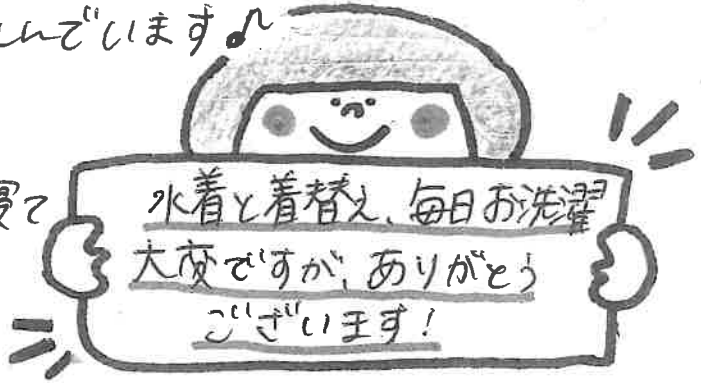 んでいます♪
寝て
水着と着替え、毎日お洗濯
大変ですが、ありがとう
ございます!